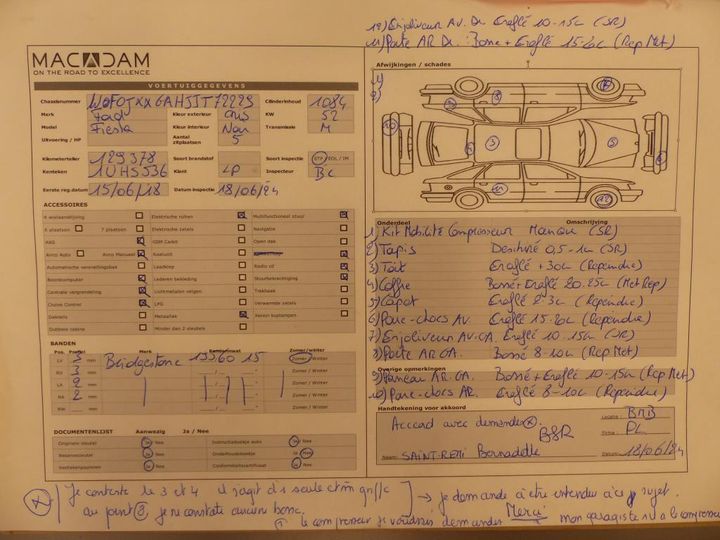 12) Enjoliveur Av. Dr Eraflé 10-15cm (SR)
11) Porte AR Dr. Bosse + Eraflé 15-20cm (Rep Met)
MACADAM
ON THE ROAD TO EXCELLENCE
VOERTUIGGEGEVENS
Chassisnummer Cilinderinhoud 1084
Merk Ford Kleur exterieur Gris KW 52
Model Fiesta Kleur interieur Noir Transmissie M
Uitvoering / HP Aantal zitplaatsen 5
Kilometerteller 129378 Soort brandstof Soort inspectie
Kenteken 1UHS536 Klant LP Inspecteur BC
Eerste reg.datum 15/06/18 Datum inspectie 18/06/24
ACCESSOIRES
4 wielaandrijving Elektrische ruiten Multifunctioneel stuur
5 plaatsen 7 plaatsen Elektrische zetels Navigatie
ABS GSM Carkit Open dak
Airco Auto Airco Manueel Koelunit
Automatische versnellingsbak Laadklep Radio cd
Boordcomputer Lederen bekleding Stuurbekrachtiging
Centrale vergrendeling Lichtmetalen velgen Trekhaak
Cruise Control LPG Verwarmde zetels
Dakrails Metaallak Xenon koplampen
Dubbele cabine Minder dan 2 sleutels
BANDEN
Pos. Profiel Merk Zomer/winter
LV 3 mm Bridgestone 195 60 15 Zomer/Winter
RV 3 mm Zomer / Winter
LA 2 mm Zomer / Winter
RA 2 mm Zomer / Winter
RW mm Zomer / Winter
DOCUMENTENLIJST Aanwezig Ja / Nee
Originele sleutel Ja Nee Instructieboekje auto Ja Nee
Reservesleutel Ja Nee Onderhoudsboekje Ja Nee
Kentekenpapieren Ja Nee Conformiteitsattest Ja Nee
Afwijkingen / schades
Onderdeel Omschrijving
1) Kit Mobilité Compresseur Manque (SR)
2) Tapis Déchiré 0,5-1cm (SR)
3) Toit Eraflé +30cm (Repeindre)
4) Coffre Bosse+Eraflé 20-25cm (Met Rep)
5) Capot Eraflé 2-3cm (Repeindre)
6) Pare-chocs Av. Eraflé 15-20cm (Repeindre)
7) Enjoliveur AV. GA. Eraflé 10-15cm (SR)
8) Porte AR GA. Bosse 8-10cm (Rep Met)
Overige opmerkingen
9) Panneau AR. GA. Bosse + Eraflé 10-15cm (Rep Met)
10) Pare-chocs AR. Eraflé 8-10cm (Repeindre)
Handtekening voor akkoord
Accord avec demandes (x). Locatie: BMB
B&R Firma: PL
Naam: SAINT-REMI Bernadette Datum: 18/06/24
(x) Je conteste le 3 et 4 il s'agit d'1 seule et même griffe
au point 3, je ne constate aucun bosse.
→ je demande à être entendue à ce sujet.
① le compresseur je voudrais demander Merci
mon garagiste